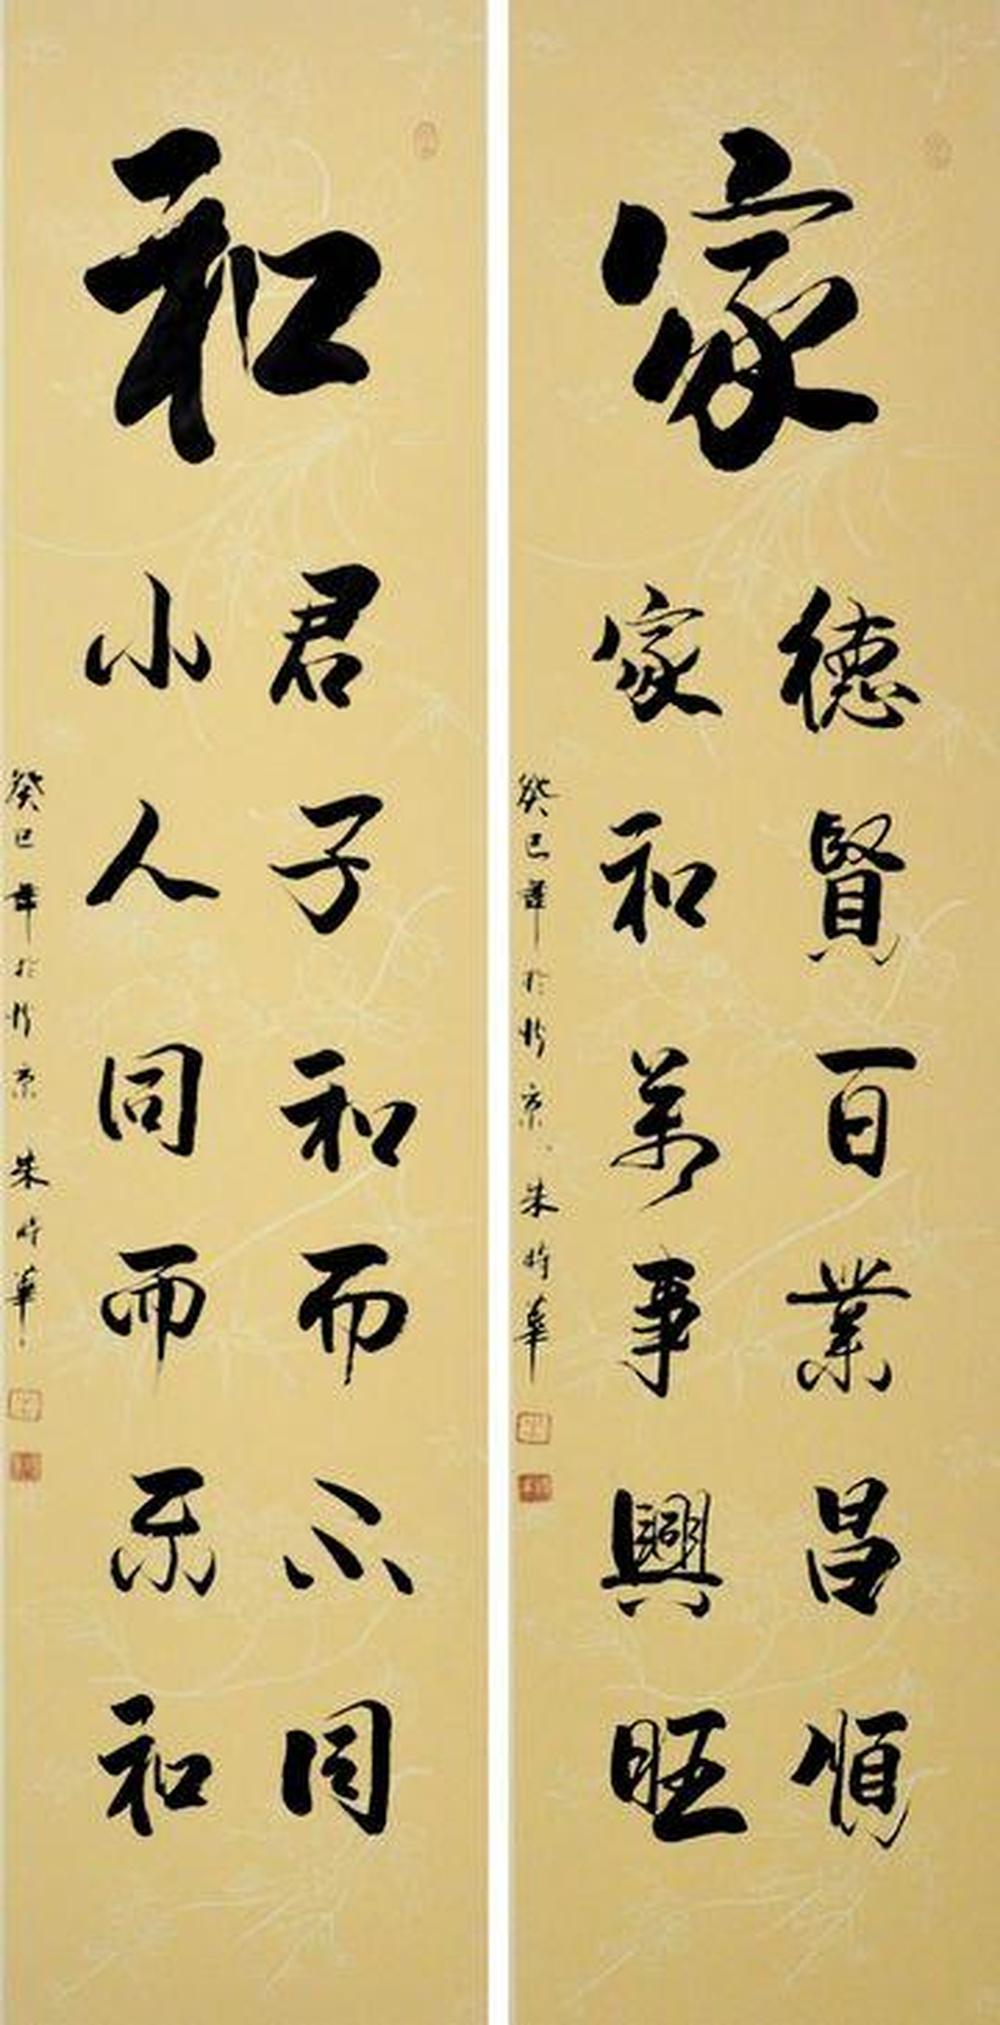 家
德賢百業昌順
家和萬事興旺
癸巳年於京 朱時華
和
君子和而不同
小人同而不和
癸巳年於京 朱時華